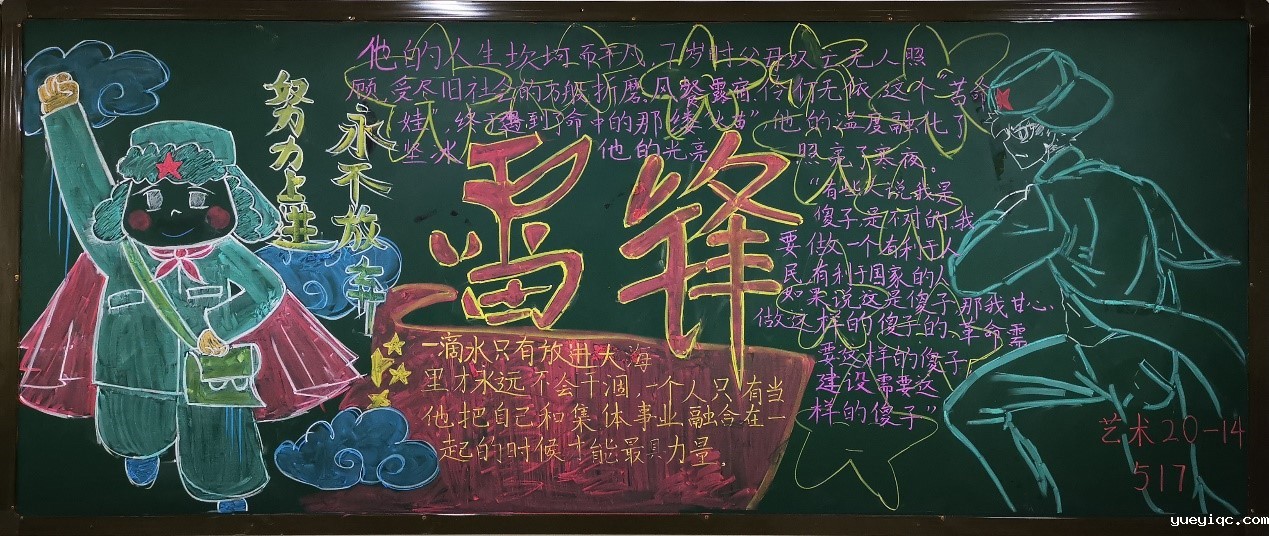 他的人生坎坷而平凡，7岁时父母双亡无人照
顾，受尽旧社会的万般折磨，风餐露宿，伶仃无依，这个“苦命
娃”，终于得到命中的那缕“火苗”，他的温度融化了
坚冰 他的光亮 照亮了寒夜。
努力上进
永不放弃
雷锋
“有些人说我是
傻子，是不对的，我
要做一个有利于人
民，有利于国家的人
如果说这是傻子，那我甘心
做这样的傻子的，革命需
要这样的傻子，
建设需要这
样的傻子”
一滴水只有放进大海
里才永远不会干涸，一个人只有当
他把自己和集体事业融合在一
起的时候才能最具力量。
艺术20-14
517
yueyiqc.com